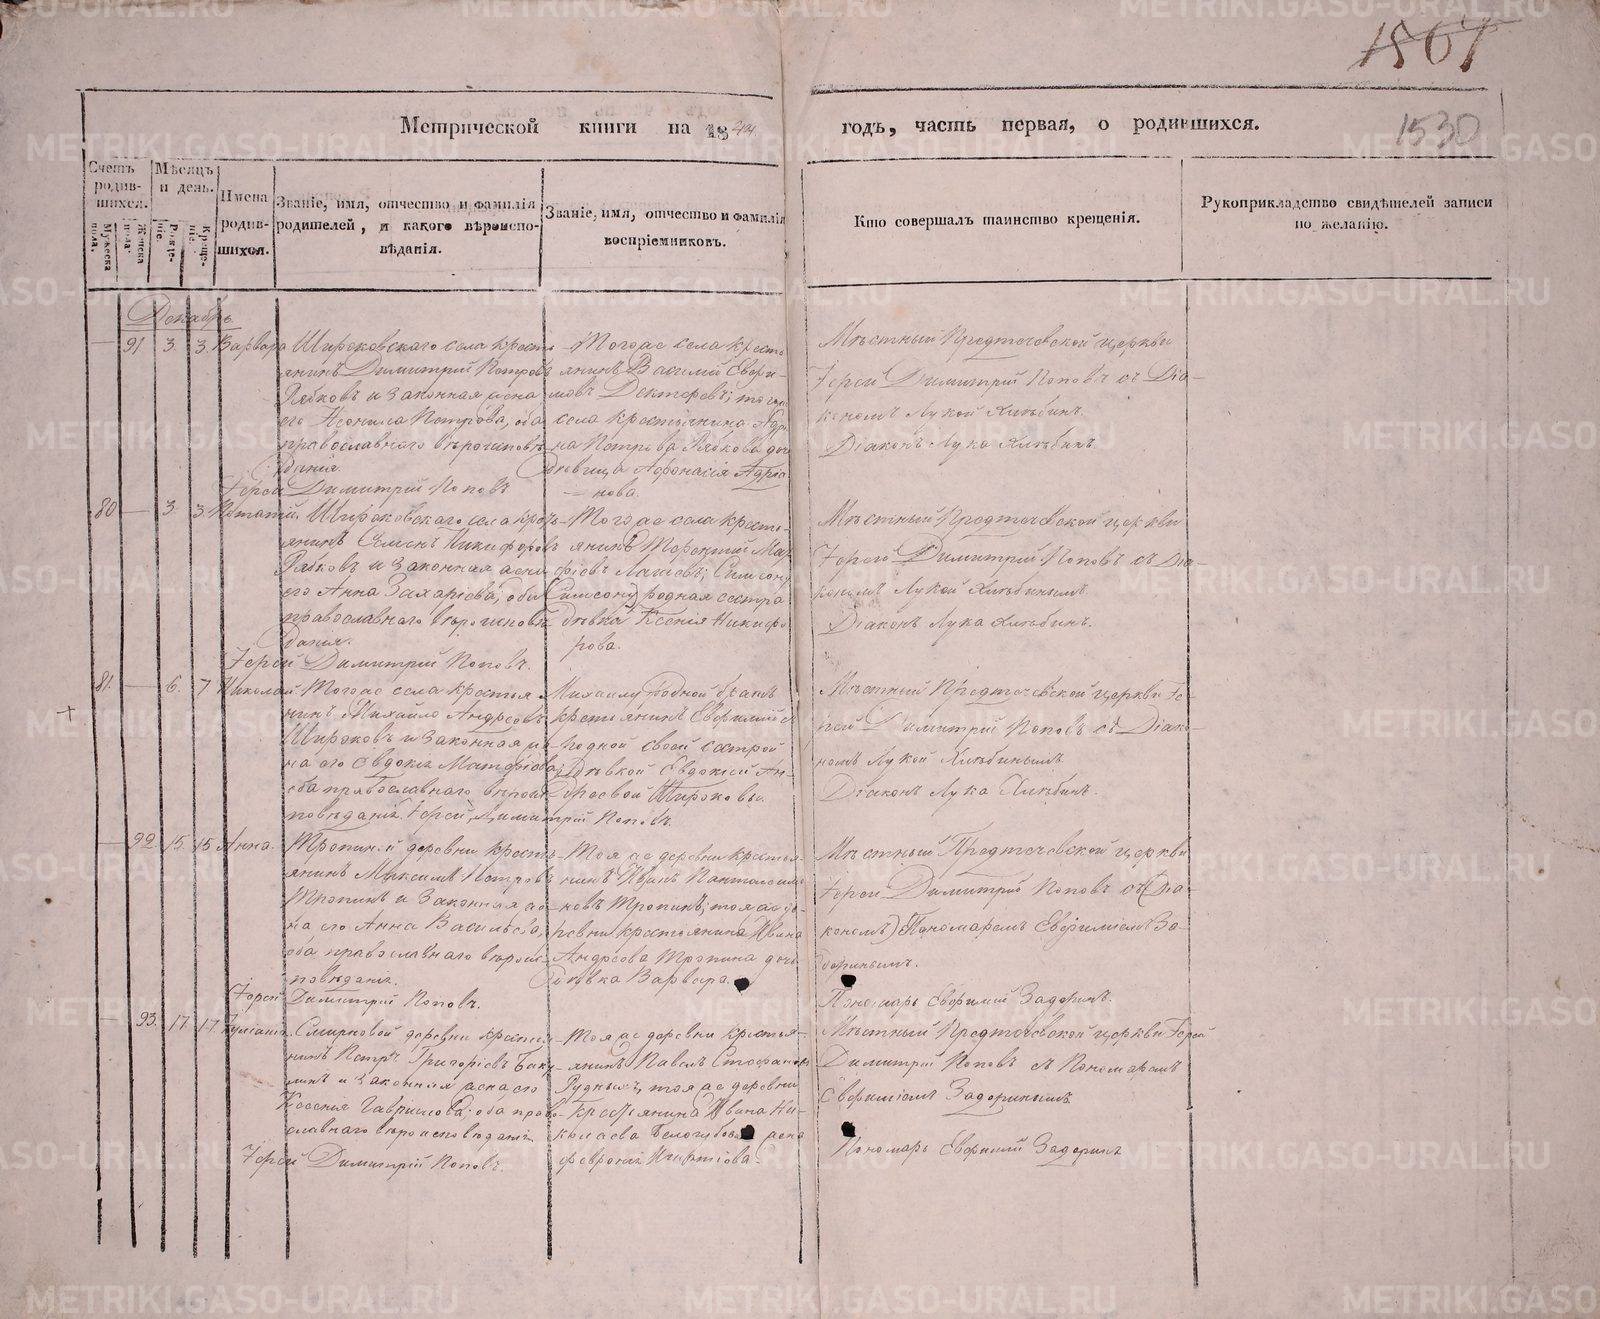 1561
1530
Метрической книги на 1844
годъ, часть первая, о родившихся.
Счетъ родив-шихся.
Мужеска пола.
Женска пола.
Мѣсяцъ и день.
Рожде-нія.
Креще-нія.
Имена родив-шихся.
Званіе, имя, отчество и фамилія родителей, и какого вѣроиспо-вѣданія.
Званіе, имя, отчество и фамилія воспріемниковъ.
Кто совершалъ таинство крещенія.
Рукоприкладство свидѣтелей записи по желанію.
Декабрь
— 91 3. 3. Варвара
Широковскаго села кресть-
янинъ Димитрій Петровъ
Рябковъ и законная жена
его Петрова, оба
православнаго вѣроисповѣ-
данія.
Іерей Димитрій Поповъ
Тогоже села кресть-
янинъ Василій Ефри-
мовъ тогоже
села крестьянина
на Петрова Рябкова доч
дѣвица Афонасія Адріа-
нова.
Мѣстный Предтечевской церкви
Іерей Димитрій Поповъ съ Діа-
кономъ Лукой Хлѣбин.
Діаконъ Лука Хлѣбинъ.
80 — 3. 3.
Широковскаго села кресть-
янинъ Семенъ Никифоровъ
Рябковъ и законная жена
его Анна Захаріева, оба
православнаго вѣроисповѣ-
данія.
Іерей Димитрій Поповъ.
Тогоже села кресть-
янинъ
родная сестра
дѣвка Ксенія Никифо-
рова.
Мѣстный Предтечевской церкви
Іерей Димитрій Поповъ съ Діа-
кономъ Лукой Хлѣбинымъ
Діаконъ Лука Хлѣбинъ.
81. — 6. 7 Николай.
Тогоже села крестья-
нинъ Михайло Андреевъ
Широковъ и законная же-
на его Евдокія
оба православнаго вѣроис-
повѣданія. Іерей Димитрій Поповъ.
Михаилу родной братъ
крестьянинъ Евфимій с
родной своей сестрой
дѣвкой Евдокіей Ан-
дреевой Широковы.
Мѣстный Предтечевской церкви Іе-
рей Димитрій Поповъ съ Діако-
номъ Лукой Хлѣбинымъ
Діаконъ Лука Хлѣбинъ.
— 92. 15. 15 Анна.
Тропиной деревни кресть-
янинъ Максимъ Петровъ
Тропинъ и законная же-
на его Анна Васильева,
оба православнаго вѣроис-
повѣданія.
Іерей Димитрій Поповъ.
Тоя же деревни крестья-
нинъ Иванъ
Тропинъ; тоя же де-
ревни крестьянина Ивана
Андреева Тропина дочь
дѣвка Варвара.
Мѣстный Предтечевской церкви
Іерей Димитрій Поповъ съ (Діа-
кономъ) Пономаремъ Евфиміемъ За-
доринымъ.
Пономарь Евфимій Задоринъ.
— 93. 17. 17.
Смирновой деревни крестья-
нинъ Петръ Григоріевъ
и законная жена его
Ксенія Гаврилова, оба право-
славнаго вѣроисповѣданія
Іерей Димитрій Поповъ.
Тоя же деревни кресть-
янинъ Павелъ Стефановъ
Рудныхъ, тоя же деревни
крестьянина Ивана Ни-
колаева Белогубова жена
Февронія Игнатіова.
Мѣстный Предтечевской церкви Іерей
Димитрій Поповъ съ Пономаремъ
Евфиміемъ Задоринымъ
Пономарь Евфимій Задоринъ
METRIKI.GASO-URAL.RU